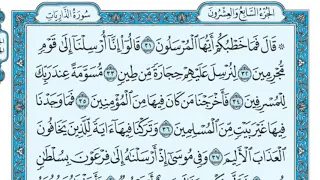 الجزء السابع والعشرون
سورة الذاريات
۞ قَالَ فَمَا خَطۡبُكُمۡ أَيُّهَا ٱلۡمُرۡسَلُونَ ٣١ قَالُوٓاْ إِنَّآ أُرۡسِلۡنَآ إِلَىٰ قَوۡمٖ
مُّجۡرِمِينَ ٣٢ لِنُرۡسِلَ عَلَيۡهِمۡ حِجَارَةٗ مِّن طِينٖ ٣٣ مُّسَوَّمَةً عِندَ رَبِّكَ
لِلۡمُسۡرِفِينَ ٣٤ فَأَخۡرَجۡنَا مَن كَانَ فِيهَا مِنَ ٱلۡمُؤۡمِنِينَ ٣٥ فَمَا وَجَدۡنَا
فِيهَا غَيۡرَ بَيۡتٖ مِّنَ ٱلۡمُسۡلِمِينَ ٣٦ وَتَرَكۡنَا فِيهَآ ءَايَةٗ لِّلَّذِينَ يَخَافُونَ
ٱلۡعَذَابَ ٱلۡأَلِيمَ ٣٧ وَفِي مُوسَىٰٓ إِذۡ أَرۡسَلۡنَٰهُ إِلَىٰ فِرۡعَوۡنَ بِسُلۡطَٰنٖ